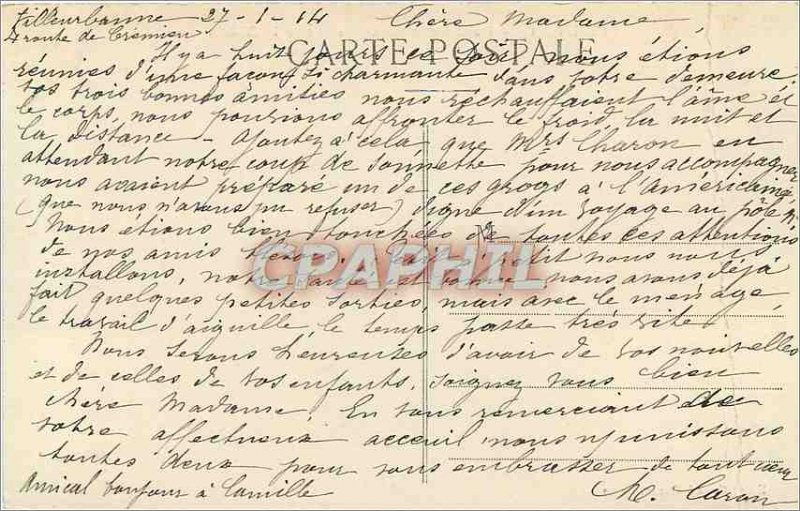 Villeurbanne 27-1-14 Chère Madame,
4 route de Crémieu
CARTE POSTALE
Il y a huit jours ce soir nous étions
réunies d'une façon si charmante dans votre demeure.
Vos trois bonnes amitiés nous réchauffaient l'âme et
le corps, nous pouvions affronter le froid, la nuit et
la distance - Ajoutez à cela que Mrs Charon en
attendant notre coup de sonnette pour nous accompagner
nous avaient préparé un de ces grogs à l'américaine
(que nous n'avons pu refuser) digne d'un voyage au pôle N.
Nous étions bien touchées de toutes ces attentions
de nos amis. petit nous nous
installons, notre santé est bonne, nous avons déjà
fait quelques petites sorties, mais avec le ménage,
le travail d'aiguille, le temps passe très vite.
Nous serons heureuses d'avoir de vos nouvelles
et de celles de vos enfants. Soignez vous bien
chère Madame. En vous remerciant de
votre affectueux acceuil nous n/unissons
toutes deux pour vous embrasser de tout cœur
Amical bonjour à Camille M. Caron
CPAPHIL